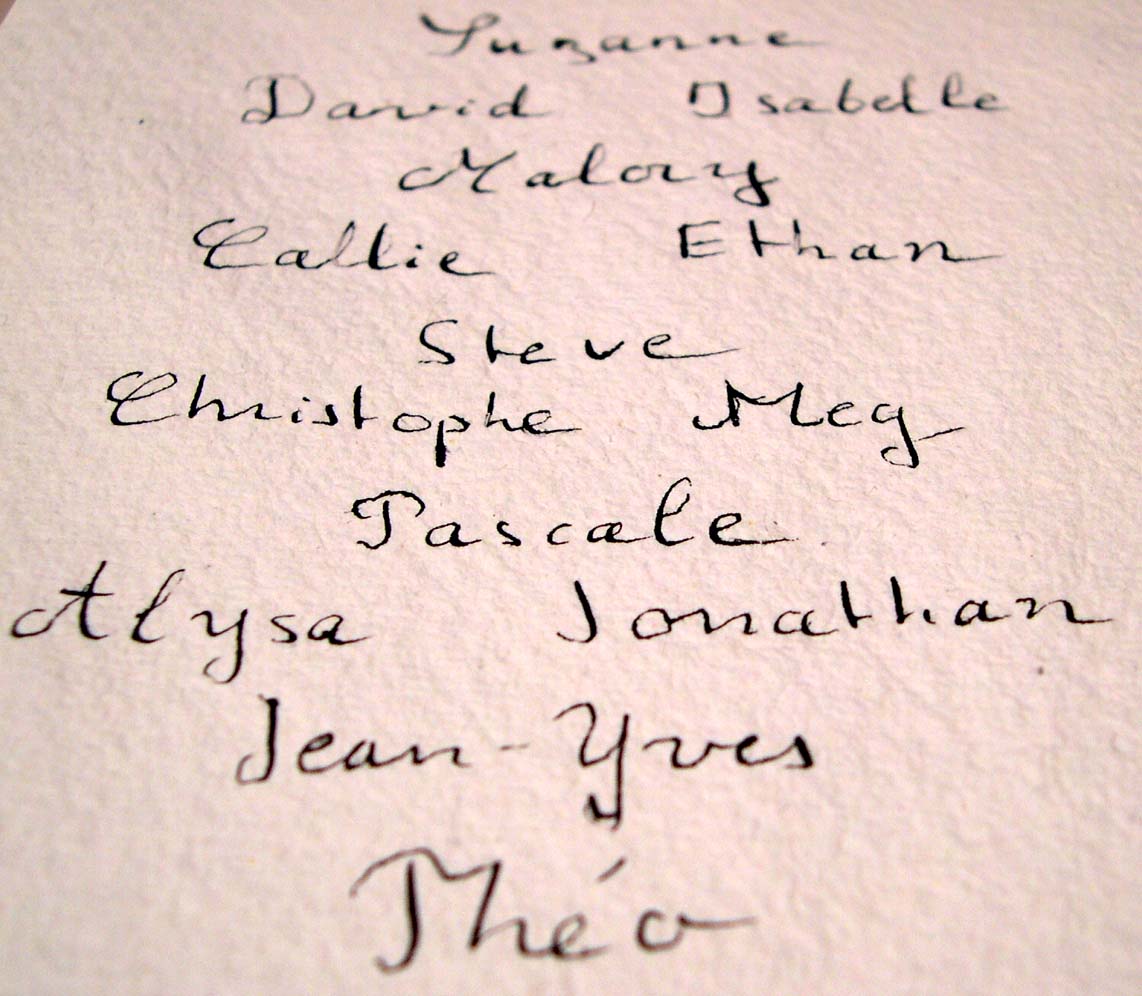 Suzanne
David Isabelle
Malory
Callie Ethan
Steve
Christophe Meg
Pascale
Alysa Jonathan
Jean-Yves
Théo